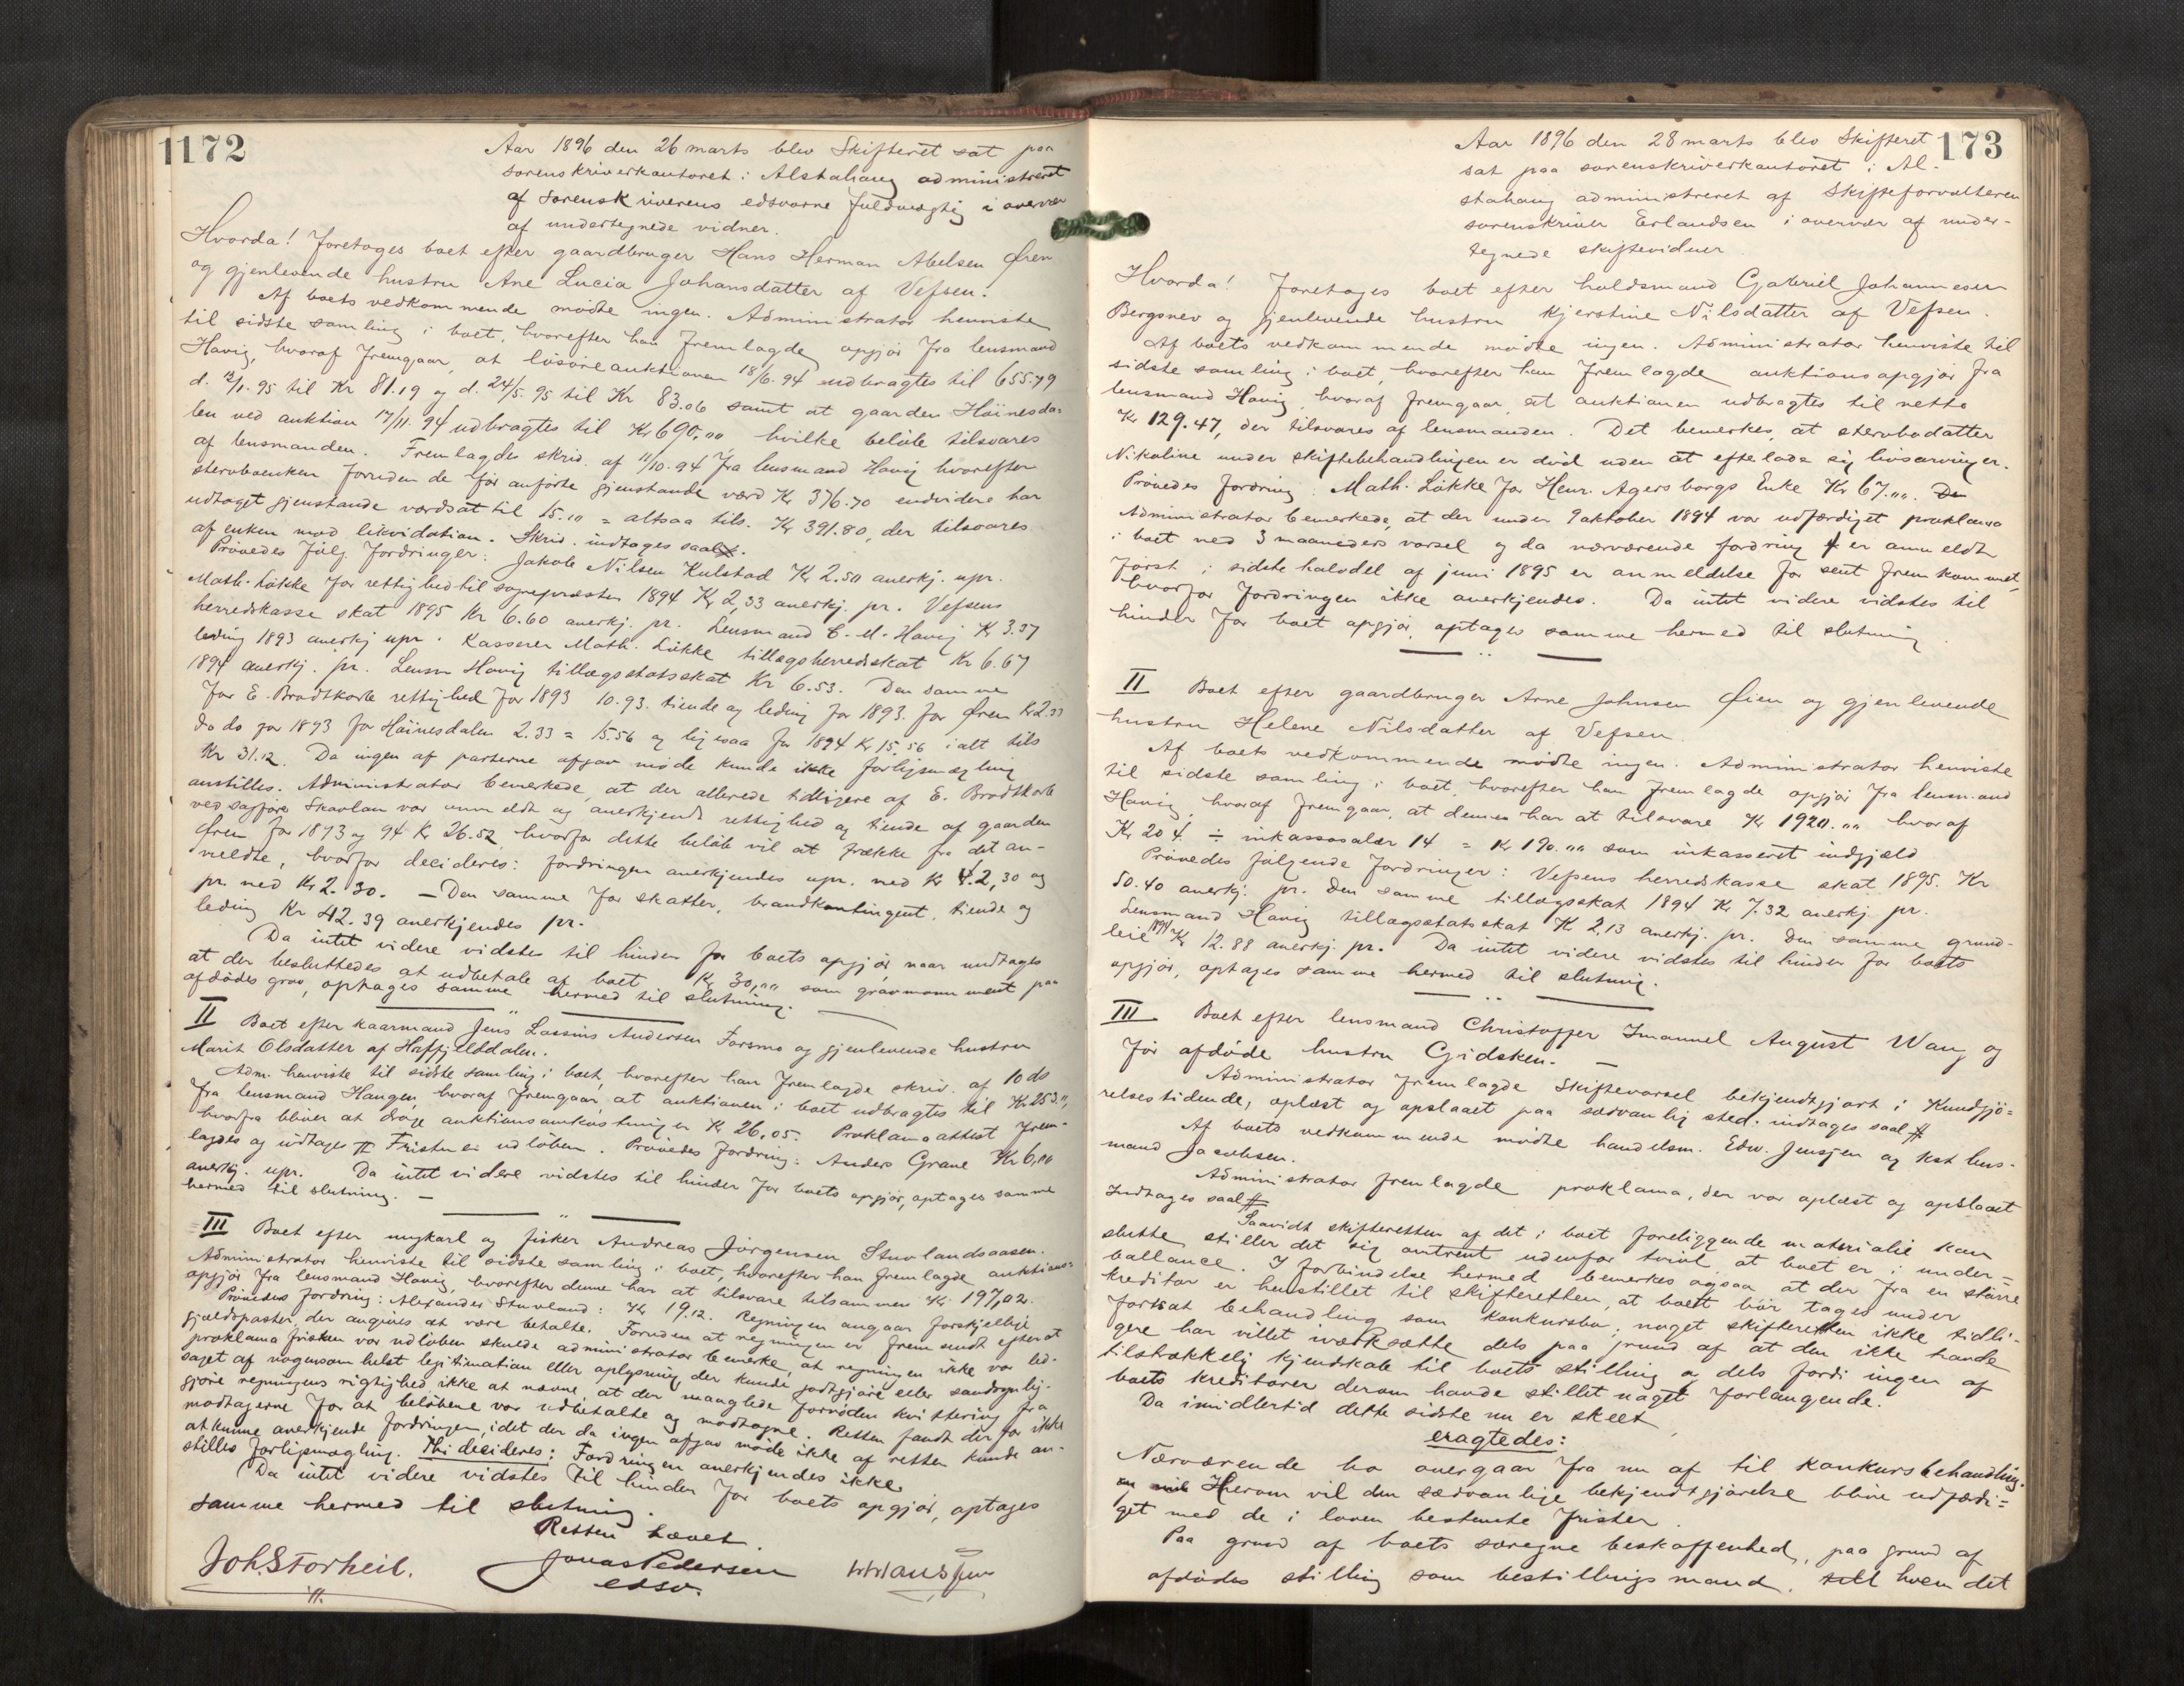 1172
Aar 1896 den 26 marts blev Skifteret sat paa
sorenskriverkontoret i Alstahaug administreret
af sorenskriverens edsvorne fuldmægtig i overvær
af undertegnede vidner.
Hvorda! Foretoges boet efter gaardbruger Hans Herman Abelsen Øren
og gjenlevende hustru Ane Lucia Johansdatter af Vefsen.
Af boets vedkommende mødte ingen. Administrator henviste
til sidste samling i boet, hvorefter han fremlagde opgjør fra lensmand
Havig, hvoraf fremgaar, at løsøreauktionen 18/6. 94 udbragtes til 655.79
d. 12/1. 95 til Kr 81.19 og d. 24/5. 95 til Kr 83.06 samt at gaarden Høinesda-
len ved auktion 17/11. 94 udbragtes til Kr 690,"" hvilke beløb tilsvares
af lensmanden. Fremlagdes skriv. af 11/10. 94 fra lensmand Havig hvorefter
stervboenken foruden de før anførte gjenstande værd Kr 376.70 endvidere har
udtaget gjenstande værdsat til 15.10 = altsaa tils. Kr 391.80, der tilsvares
af enken mod likvidation. Skriv. indtages saal.
Prøvedes følg. fordringer: Jakob Nilsen Kulstad Kr 2.50 anerkj. upr.
Math. Løkke for rettighed til sognepresten 1894 Kr 2,33 anerkj. pr. Vefsens
herredskasse skat 1895 Kr 6.60 anerkj. pr. Lensmand C. M. Havig Kr 3.37
leding 1893 anerkj upr. Kasserer Math. Løkke tillægsherredsskat Kr 6.67
1894 anerkj. pr. Lensm Havig tillægsstatsskat Kr 6.53. Den samme
for E. Brodtkorb rettighed for 1893 10.93. tiende og leding for 1893. for Øren Kr 2.33
do do for 1893 for Høinesdalen 2.33 = 15.56 og ligesaa for 1894 Kr 15.56 ialt tils
Kr 31.12. Da ingen af parterne afgav møde kunde ikke forligsmægling
anstilles. Administrator bemerkede, at der allerede tidligere af E. Brodtkorb
ved sagfører Skavlan var anmeldt og anerkjendt rettighed og tiende af gaarden
Øren for 1893 og 94 Kr 26.52, hvorfor dette beløb vil at trække fra det an-
meldte, hvorfor decideres: fordringen anerkjendes upr. med Kr 2,30 og
pr. med Kr 2.30. — Den samme for skatter, brandkontingent, tiende og
leding Kr 42.39 anerkjendes pr.
Da intet videre vidstes til hinder for boets opgjør naar undtages
at der besluttedes at udbetale af boet Kr 30,"" som gravmonument paa
afdødes grav, optages samme hermed til slutning.
II Boet efter kaarmand Jens Lassins Andersen Forsmo og gjenlevende hustru
Marit Olsdatter af Hatfjelddalen.
Adm. henviste til sidste samling i boet, hvorefter han fremlagde skriv. af 10 ds
fra lensmand Haugen, hvoraf fremgaar, at auktionen i boet udbragtes til Kr 253."",
hvorfra bliver at drage auktionsomkostninger Kr 26,05. Proklamaattest frem-
lagdes og indtages # Fristen er udløben. Prøvedes fordring: Anders Grane Kr 6,00
anerkj. upr. Da intet videre vidstes til hinder for boets opgjør, optages samme
hermed til slutning. —
III Boet efter ungkarl og fisker Andreas Jørgensen Stuvlandsaasen.
Administrator henviste til sidste samling i boet, hvorefter han fremlagde auktions-
opgjør fra lensmand Havig, hvorefter denne har at tilsvare tilsammen Kr 197,02.
Prøvedes fordring: Alexander Stuvland: Kr 19,12. Regningen angaar forskjellige
gjældsposter, der angives at være betalte. Foruden at regningen er fremsendt efterat
proklama fristen var udløben skulde administrator bemerke, at regningen ikke var led-
saget af nogensomhelst legitimation eller oplysning der kunde godtgjøre eller sandsynlig-
gjøre regningens rigtighed ikke at nævne, at der manglede fornøden kvittering fra
modtagerne for at beløbene var udbetalte og modtagne. Retten fandt derfor ikke
at kunne anerkjende fordringen, idet der da ingen afgav møde ikke af retten kunde an-
stilles forligsmægling. Thi decideres: Fordringen anerkjendes ikke.
Da intet videre vidstes til hinder for boets opgjør, optages
samme hermed til slutning.
Retten hævet.
Joh. Storheil.
Jonas Pedersen
edsv.
HHansen
173
Aar 1896 den 28 marts blev Skifteret
sat paa sorenskriverkontoret i Al-
stahaug administreret af Skifteforvalteren
sorenskriver Erlandsen i overvær af under-
tegnede skiftevidner
Hvorda! Foretoges boet efter holdsmand Gabriel Johannesen
Bergsnev og gjenlevende hustru Kjerstine Nilsdatter af Vefsen.
Af boets vedkommende mødte ingen. Administrator henviste til
sidste samling i boet, hvorefter han fremlagde auktionsopgjør fra
lensmand Havig, hvoraf fremgaar, at auktionen udbragtes til netto
Kr 129.47, der tilsvares af lensmanden. Det bemerkes, at stervbodatter
Nikoline under skiftebehandlingen er død uden at efterlade sig livsarvinger.
Prøvedes fordring: Math. Løkke for Henr. Agersborgs Enke Kr 67."". De
Administrator bemerkede, at der under 9 oktober 1894 var udfærdiget proklama
i boet med 3 maaneders varsel og da nærværende fordring er anmeldt
først i sidste halvdel af juni 1895 er anmeldelse for sent fremkommet,
hvorfor fordringen ikke anerkjendes. Da intet videre vidstes til
hinder for boet opgjør, optages samme hermed til slutning.
II Boet efter gaardbruger Arne Johnsen Øien og gjenlevende
hustru Helene Nilsdatter af Vefsen.
Af boets vedkommende mødte ingen. Administrator henviste
til sidste samling i boet, hvorefter han fremlagde opgjør fra lensmand
Havig, hvoraf fremgaar, at denne har at tilsvare Kr 1920."" hvoraf
Kr 204 ÷ inkassosalær 14 = Kr 190."" som inkasseret indgjæld
Prøvedes følgende fordringer: Vefsens herredskasse skat 1895. Kr
50.40 anerkj. pr. den samme tillægsskat 1894 Kr 7.32 anerkj. pr.
Lensmand Havig tillægsstatsskat K 2,13 anerkj. pr. Den samme grund-
leie 1894 Kr 12.88 anerkj. pr. Da intet videre vidstes til hinder for boets
opgjør, optages samme hermed til slutning.
III Boet efter lensmand Christoffer Imanuel August Wang og
før afdøde hustru Gidsken. —
Administrator fremlagde Skiftevarsel bekjendtgjort i Kundgjø-
relsestidende, oplæst og opslaaet paa sædvanlig sted. indtages saal #
Af boets vedkommende mødte handelsm. Edw. Jensen og kst lens-
mand Jacobsen.
Administrator fremlagde proklama, der var oplæst og opslaaet
Indtages saal #
Saavidt skifteretten af det i boet foreliggende materiale kan
slutte stiller det sig omtrent udenfor tvivl, at boet er i under-
ballance. I forbindelse hermed bemerkes ogsaa at der fra en større
kreditor er henstillet til skifteretten, at boet bør tages under
fortsat behandling som konkursbo; noget skifteretten ikke tidli-
gere har villet iværksætte dels paa grund af at den ikke havde
tilstrækkelig kjendskab til boets stilling og dels fordi ingen af
boets kreditorer derom havde stillet noget forlangende.
Da imidlertid dette sidste nu er skeet,
eragtedes:
Nærværende bo overgaar fra nu af til konkursbehandling.
Herom vil den sædvanlige bekjendtgjørelse blive udfærdi-
get med de i loven bestemte frister.
Paa grund af boets særegne beskaffenhed, paa grund af
afdødes stilling som bestillingsmand, hvem det